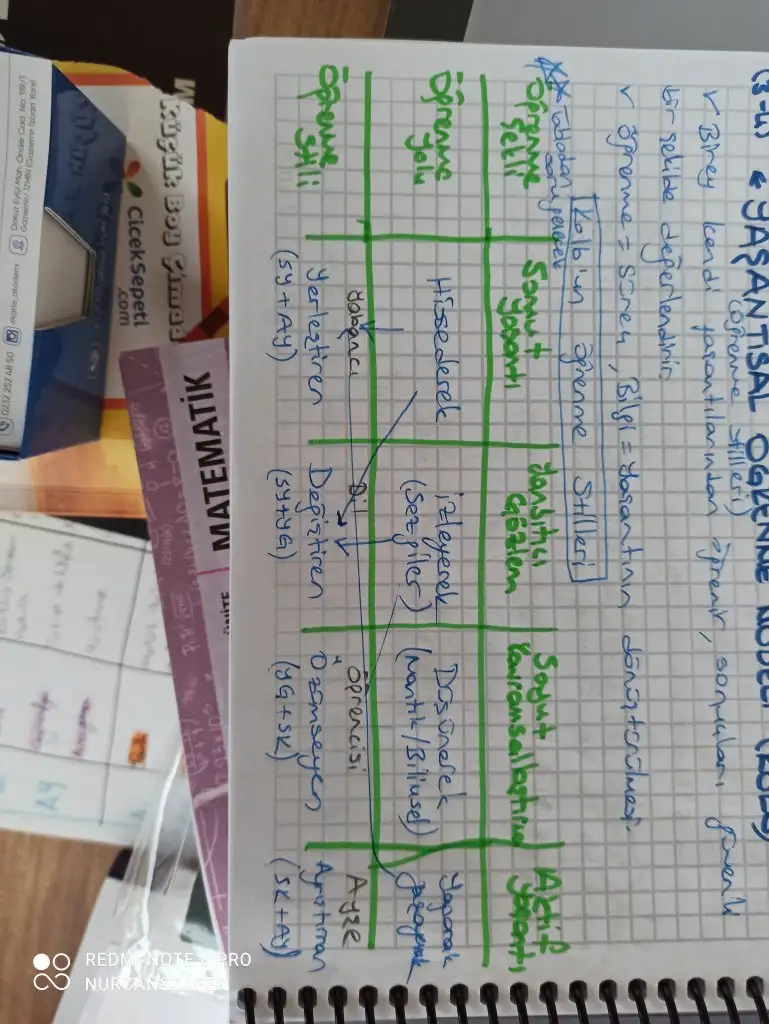 (3-4) YAŞANTISAL ÖĞRENME MODELİ (KOLB)
(Öğrenme stilleri)
✓ Birey kendi yaşantılarından öğrenir, sonuçları güvenli
bir şekilde değerlendirir.
✓ Öğrenme = Süreç, Bilgi = Yaşantının dönüştürülmesi.
Kolb'un Öğrenme Stilleri
Tablodan soru gelecek
Öğrenme Şekli | Somut Yaşantı | Yansıtıcı Gözlem | Soyut Kavramsallaştırma | Aktif Yaşantı
Öğrenme Yolu | Hissederek | İzleyerek (Sezgiler) | Düşünerek (Mantık/Bilimsel) | Yaparak Yaşayarak
Yabancı Dil Öğrencisi Ayşe
Öğrenme Stili | Yerleştiren (SY+AY) | Değiştiren (SY+YG) | Özümseyen (YG+SK) | Ayrıştıran (SK+AY)
MATEMATİK
CicekSepeti
.com
0232 252 48 50
AY
REDMI NOTE PRO